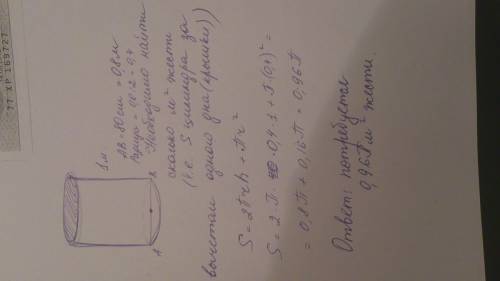 77 ХР 169727
1 м
A
B
AB = 80 см = 0,8 м
= 0,4
Необходимо найти
сколько м² жести
(т.е. S цилиндра за
вычетом одного дна (крышки))
S = 2πrh + πr²
S = 2·π·0,4·1 + π·(0,4)² =
= 0,8π + 0,16π = 0,96π
Ответ: потребуется
0,96π м² жести.